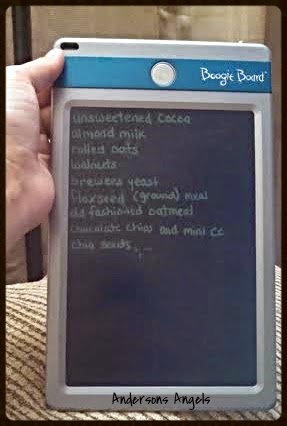 Boogie Board™
unsweetened cocoa
almond milk
rolled oats
walnuts
brewers yeast
flaxseed (ground) meal
old fashioned oatmeal
chocolate chips and mini cc
chia seeds
Andersons Angels